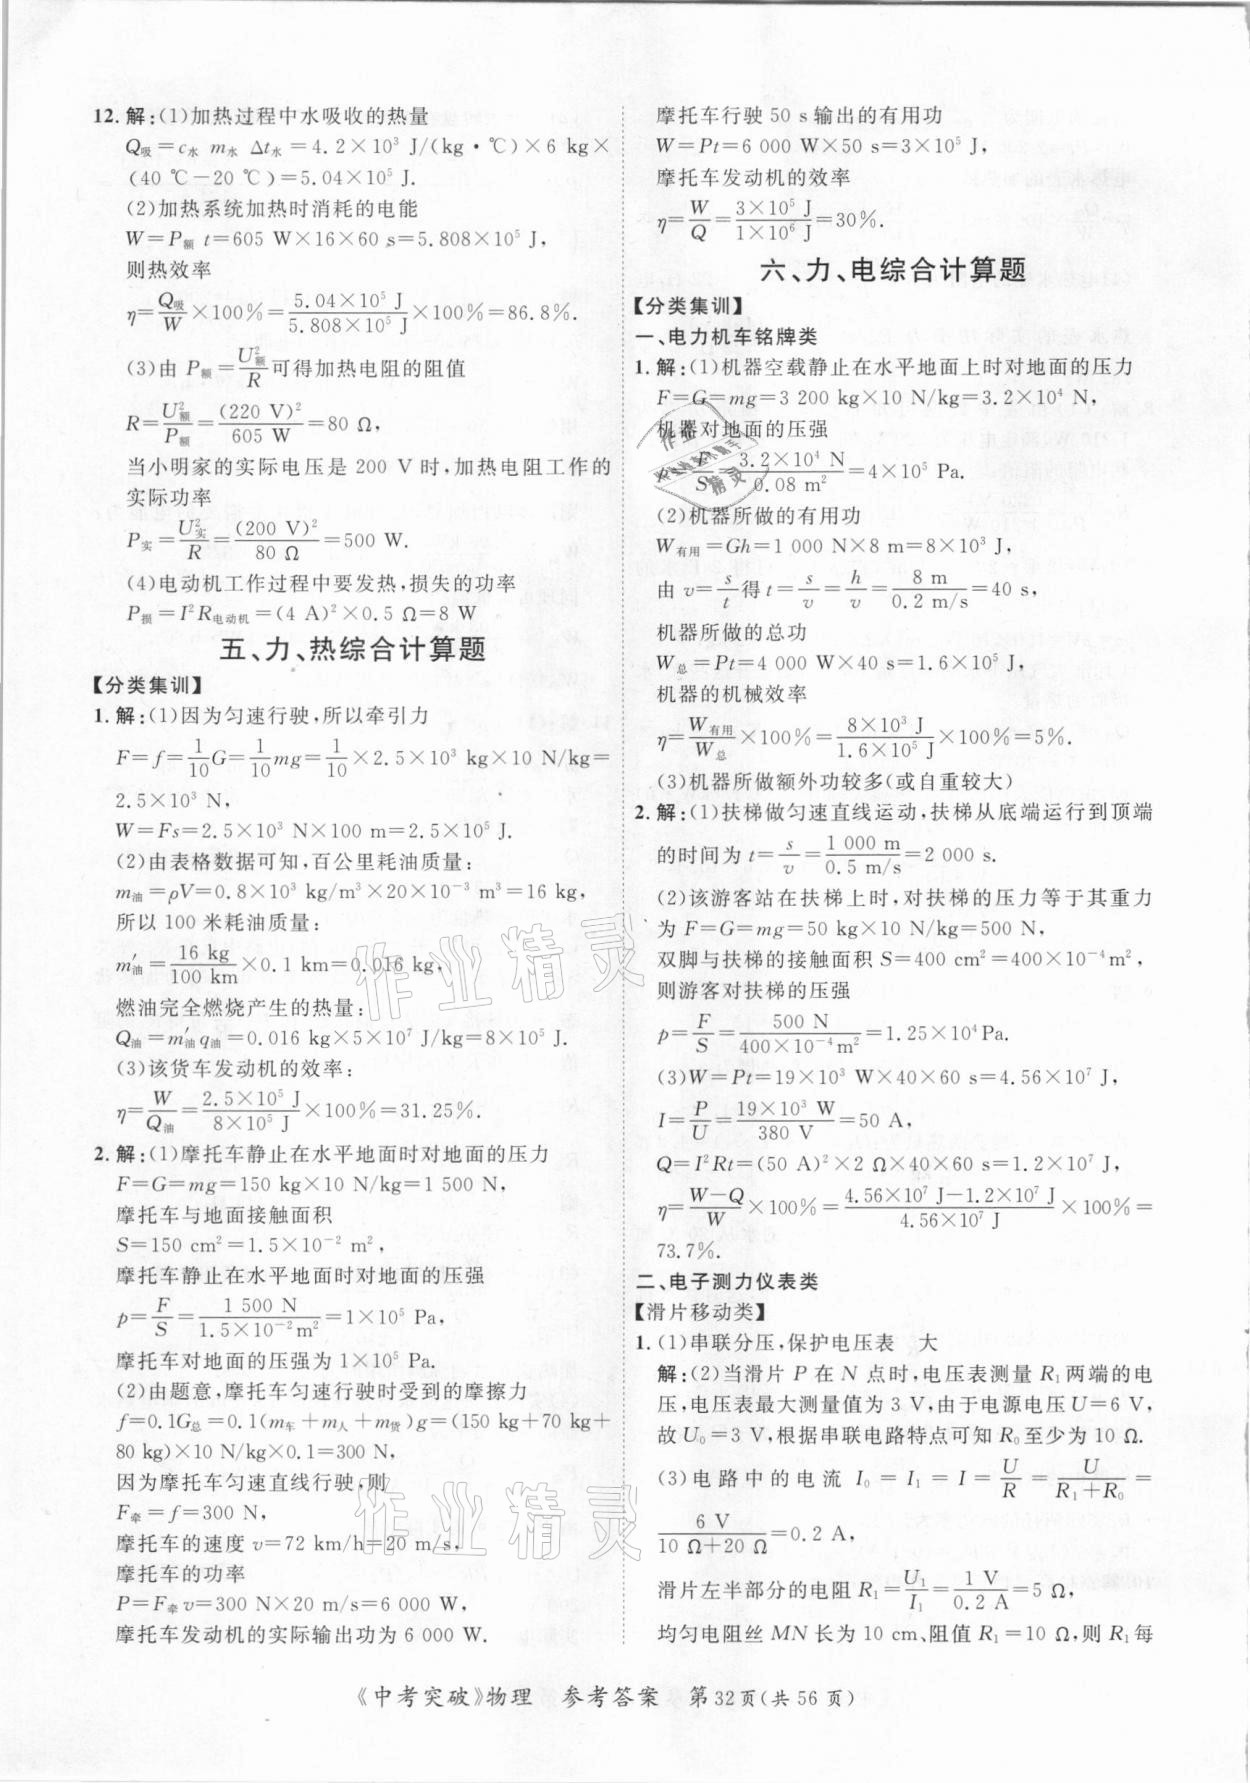 12. 解:(1)加热过程中水吸收的热量
Q吸=c水 m水 Δt水=4.2×10³ J/(kg·℃)×6 kg×
(40 ℃-20 ℃)=5.04×10⁵ J.
(2)加热系统加热时消耗的电能
W=P额 t=605 W×16×60 s=5.808×10⁵ J,
则热效率
η=Q吸/W×100%=5.04×10⁵ J/5.808×10⁵ J×100%=86.8%.
(3)由 P额=U²额/R可得加热电阻的阻值
R=U²额/P额=(220 V)²/605 W=80 Ω,
当小明家的实际电压是 200 V 时,加热电阻工作的
实际功率
P实=U²实/R=(200 V)²/80 Ω=500 W.
(4)电动机工作过程中要发热,损失的功率
P损=I²R电动机=(4 A)²×0.5 Ω=8 W
五、力、热综合计算题
【分类集训】
1. 解:(1)因为匀速行驶,所以牵引力
F=f=1/10G=1/10mg=1/10×2.5×10³ kg×10 N/kg=
2.5×10³ N,
W=Fs=2.5×10³ N×100 m=2.5×10⁵ J.
(2)由表格数据可知,百公里耗油质量:
m油=ρV=0.8×10³ kg/m³×20×10⁻³ m³=16 kg,
所以 100 米耗油质量:
m′油=16 kg/100 km×0.1 km=0.016 kg,
燃油完全燃烧产生的热量:
Q油=m′油q油=0.016 kg×5×10⁷ J/kg=8×10⁵ J.
(3)该货车发动机的效率:
η=W/Q油=2.5×10⁵ J/8×10⁵ J×100%=31.25%.
2. 解:(1)摩托车静止在水平地面时对地面的压力
F=G=mg=150 kg×10 N/kg=1 500 N,
摩托车与地面接触面积
S=150 cm²=1.5×10⁻² m²,
摩托车静止在水平地面时对地面的压强
p=F/S=1 500 N/1.5×10⁻²m²=1×10⁵ Pa,
摩托车对地面的压强为 1×10⁵ Pa.
(2)由题意,摩托车匀速行驶时受到的摩擦力
f=0.1G总=0.1(m车+m人+m货)g=(150 kg+70 kg+
80 kg)×10 N/kg×0.1=300 N,
因为摩托车匀速直线行驶,则
F牵=f=300 N,
摩托车的速度 v=72 km/h=20 m/s,
摩托车的功率
P=F牵v=300 N×20 m/s=6 000 W,
摩托车发动机的实际输出功为 6 000 W.
摩托车行驶 50 s 输出的有用功
W=Pt=6 000 W×50 s=3×10⁵ J,
摩托车发动机的效率
η=W/Q=3×10⁵ J/1×10⁶ J=30%.
六、力、电综合计算题
【分类集训】
一、电力机车铭牌类
1. 解:(1)机器空载静止在水平地面上时对地面的压力
F=G=mg=3 200 kg×10 N/kg=3.2×10⁴ N,
机器对地面的压强
p=F/S=3.2×10⁴ N/0.08 m²=4×10⁵ Pa.
(2)机器所做的有用功
W有用=Gh=1 000 N×8 m=8×10³ J,
由 v=s/t得 t=s/v=h/v=8 m/0.2 m/s=40 s,
机器所做的总功
W总=Pt=4 000 W×40 s=1.6×10⁵ J,
机器的机械效率
η=W有用/W总×100%=8×10³ J/1.6×10⁵ J×100%=5%.
(3)机器所做额外功较多(或自重较大)
2. 解:(1)扶梯做匀速直线运动,扶梯从底端运行到顶端
的时间为 t=s/v=1 000 m/0.5 m/s=2 000 s.
(2)该游客站在扶梯上时,对扶梯的压力等于其重力
为 F=G=mg=50 kg×10 N/kg=500 N,
双脚与扶梯的接触面积 S=400 cm²=400×10⁻⁴m²,
则游客对扶梯的压强
p=F/S=500 N/400×10⁻⁴m²=1.25×10⁴Pa.
(3)W=Pt=19×10³ W×40×60 s=4.56×10⁷ J,
I=P/U=19×10³ W/380 V=50 A,
Q=I²Rt=(50 A)²×2 Ω×40×60 s=1.2×10⁷ J,
η=W-Q/W×100%=4.56×10⁷ J-1.2×10⁷ J/4.56×10⁷ J×100%=
73.7%.
二、电子测力仪表类
【滑片移动类】
1. (1)串联分压,保护电压表 大
解:(2)当滑片 P 在 N 点时,电压表测量 R₁两端的电
压,电压表最大测量值为 3 V,由于电源电压 U=6 V,
故 U₀=3 V,根据串联电路特点可知 R₀至少为 10 Ω.
(3)电路中的电流 I₀=I₁=I=U/R=U/R₁+R₀=
6 V/10 Ω+20 Ω=0.2 A,
滑片左半部分的电阻 R₁=U₁/I₁=1 V/0.2 A=5 Ω,
均匀电阻丝 MN 长为 10 cm、阻值 R₁=10 Ω,则 R₁每
《中考突破》物理 参考答案 第32页(共56页)
作业精灵
作业精灵
作业
精灵